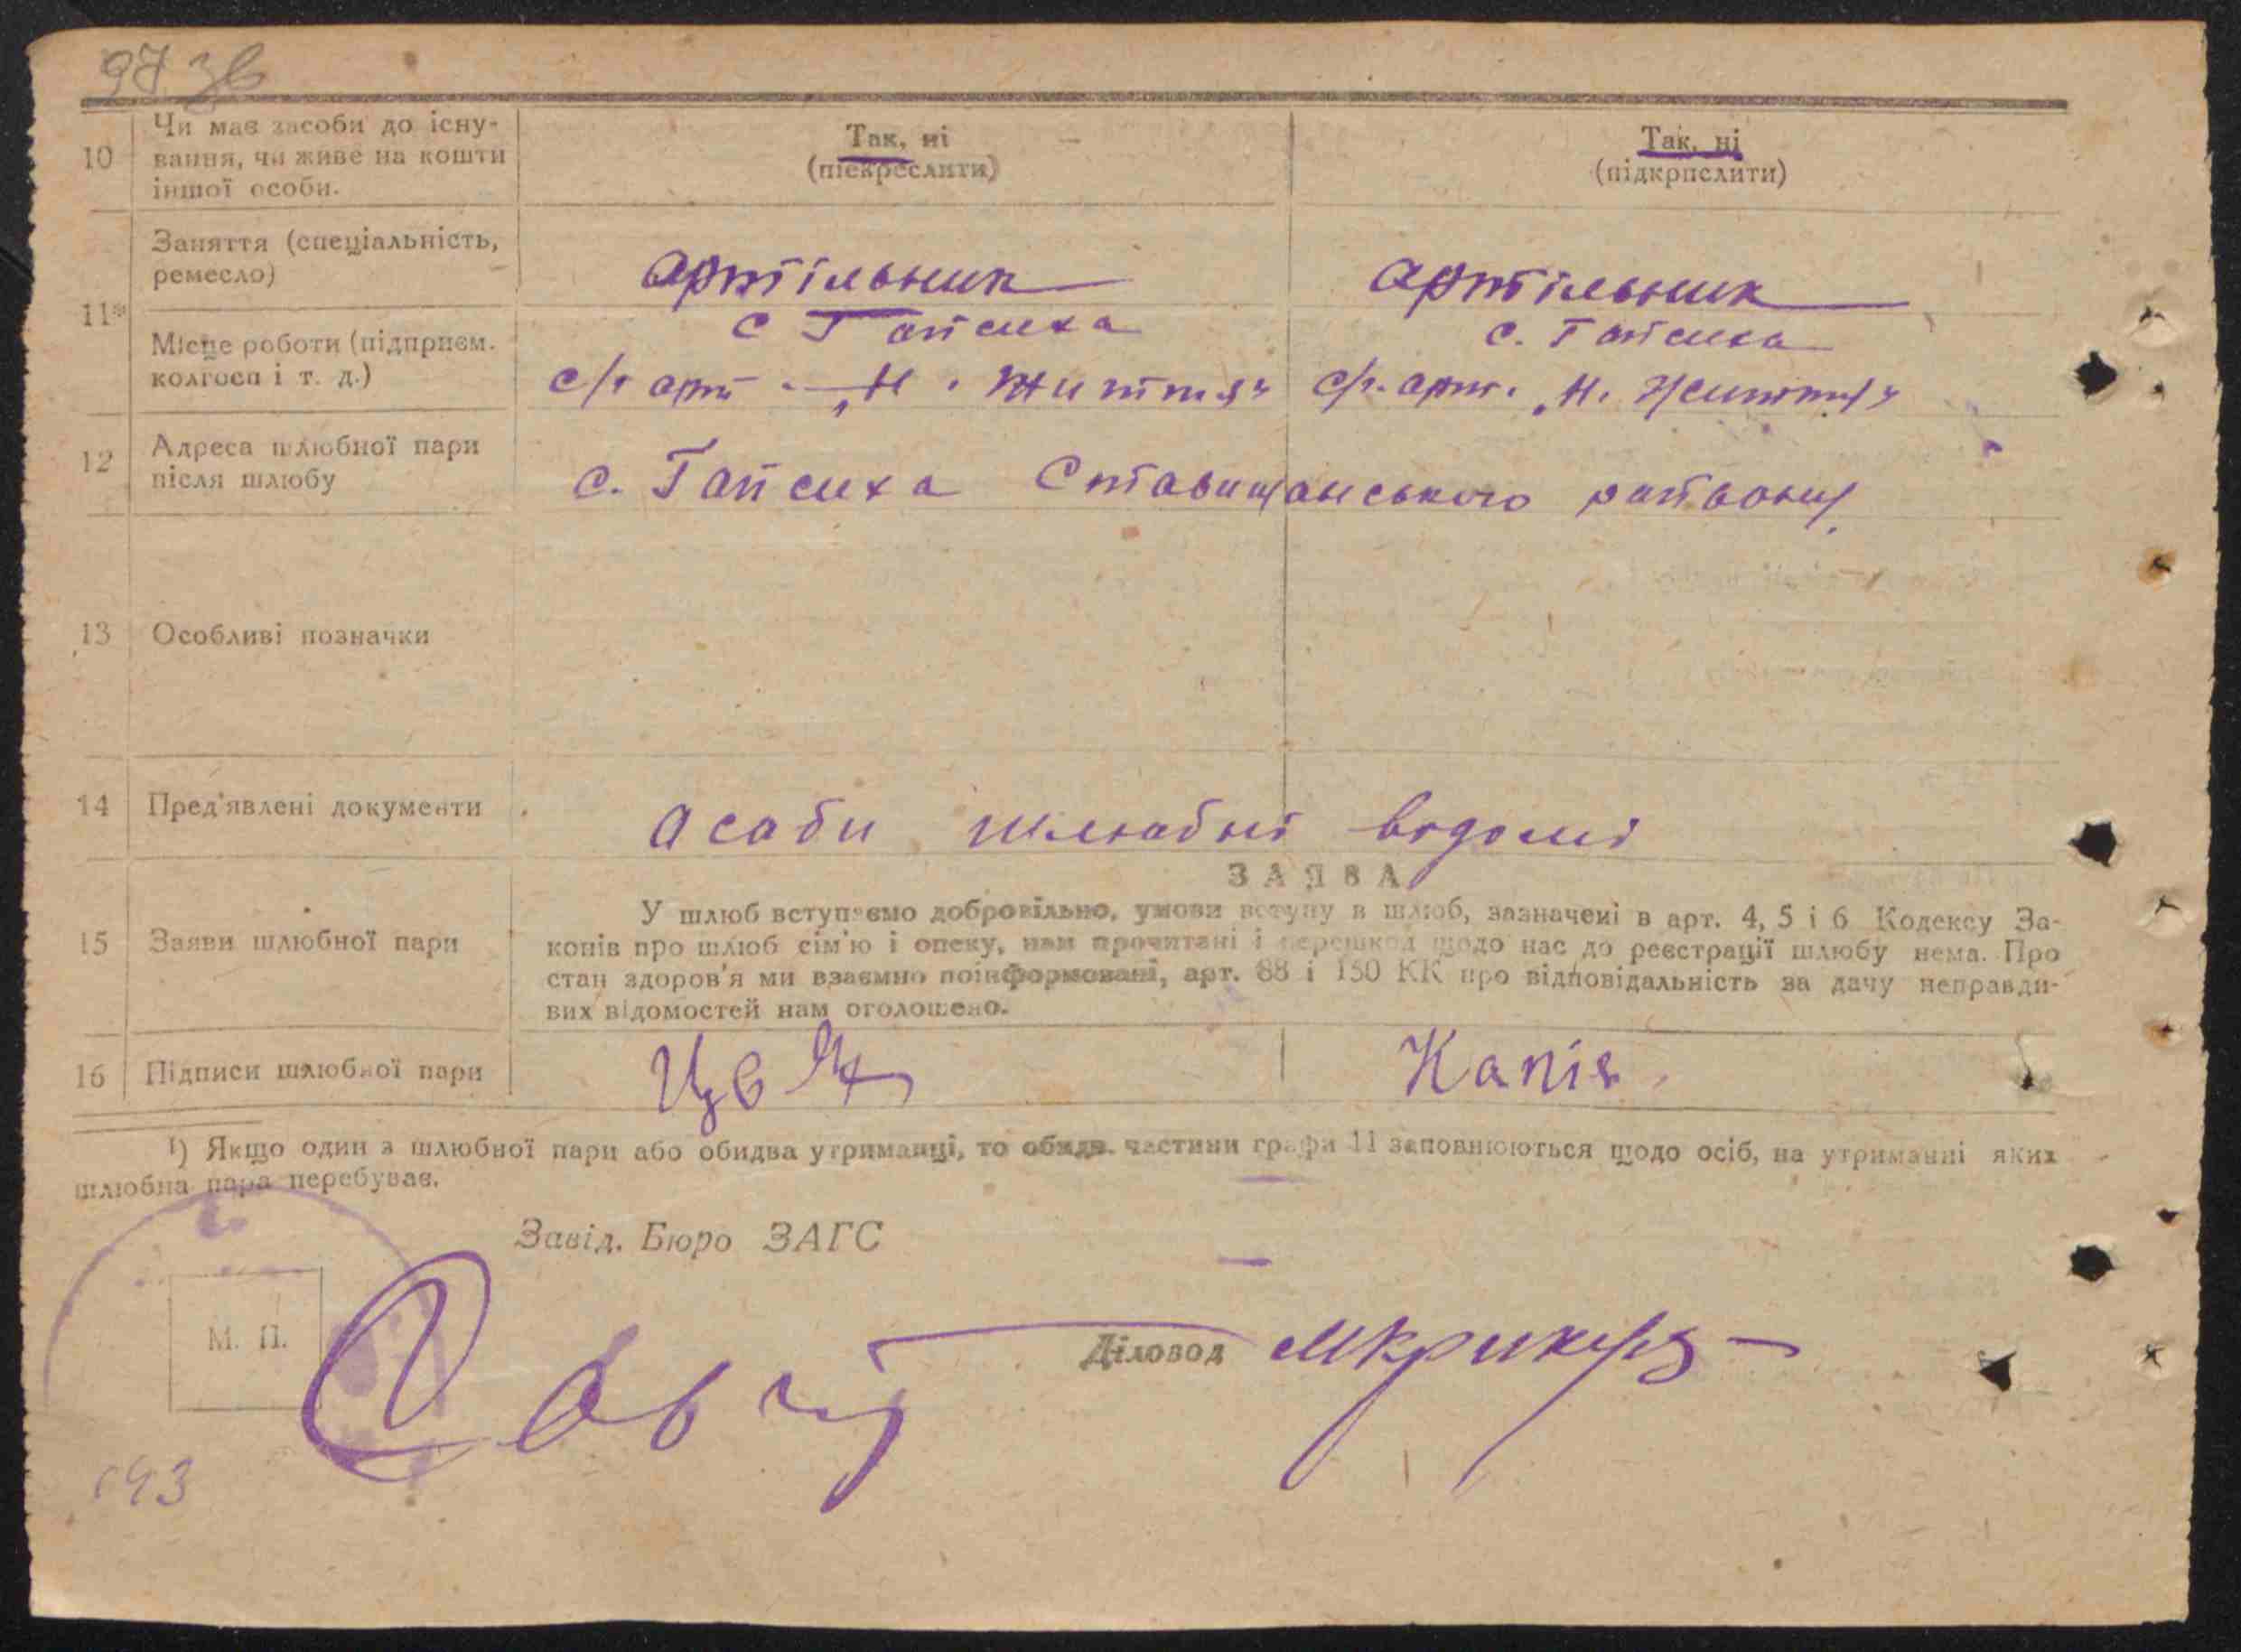 97 зв
10 Чи має засоби до існу-
вання, чи живе на кошти
іншої особи.
Так, ні
(піскреслити)
Так, ні
(підкрпслити)
11*
Заняття (спеціальність,
ремесло)
артільник
артільник
Місце роботи (підприєм.
колгосп і т. д.)
с Гайсиха
с/г арт. „Н. Життя"
с. Гайсиха
с/г. арт. „Н. Життя"
12 Адреса шлюбної пари
після шлюбу
с. Гайсиха Ставищанського району.
13 Особливі позначки
14 Пред'явлені документи
асаби шлюбні відомі
15 Заяви шлюбної пари
ЗАЯВА
У шлюб вступаємо добровільно, умови вступу в шлюб, зазначені в арт. 4, 5 і 6 Кодексу За-
конів про шлюб сім'ю і опеку, нам прочитані і перешкод щодо нас до реєстрації шлюбу нема. Про
стан здоров'я ми взаємно поінформовані, арт. 88 і 130 КК про відповідальність за дачу неправди-
вих відомостей нам оголошено.
16 Підписи шлюбної пари
Капія
1) Якщо один з шлюбної пари або обидва утриманці, то обидв. частини графи 11 заповнюються щодо осіб, на утриманні яких
шлюбна пара перебуває.
Завід. Бюро ЗАГС
М. П.
Діловод
193